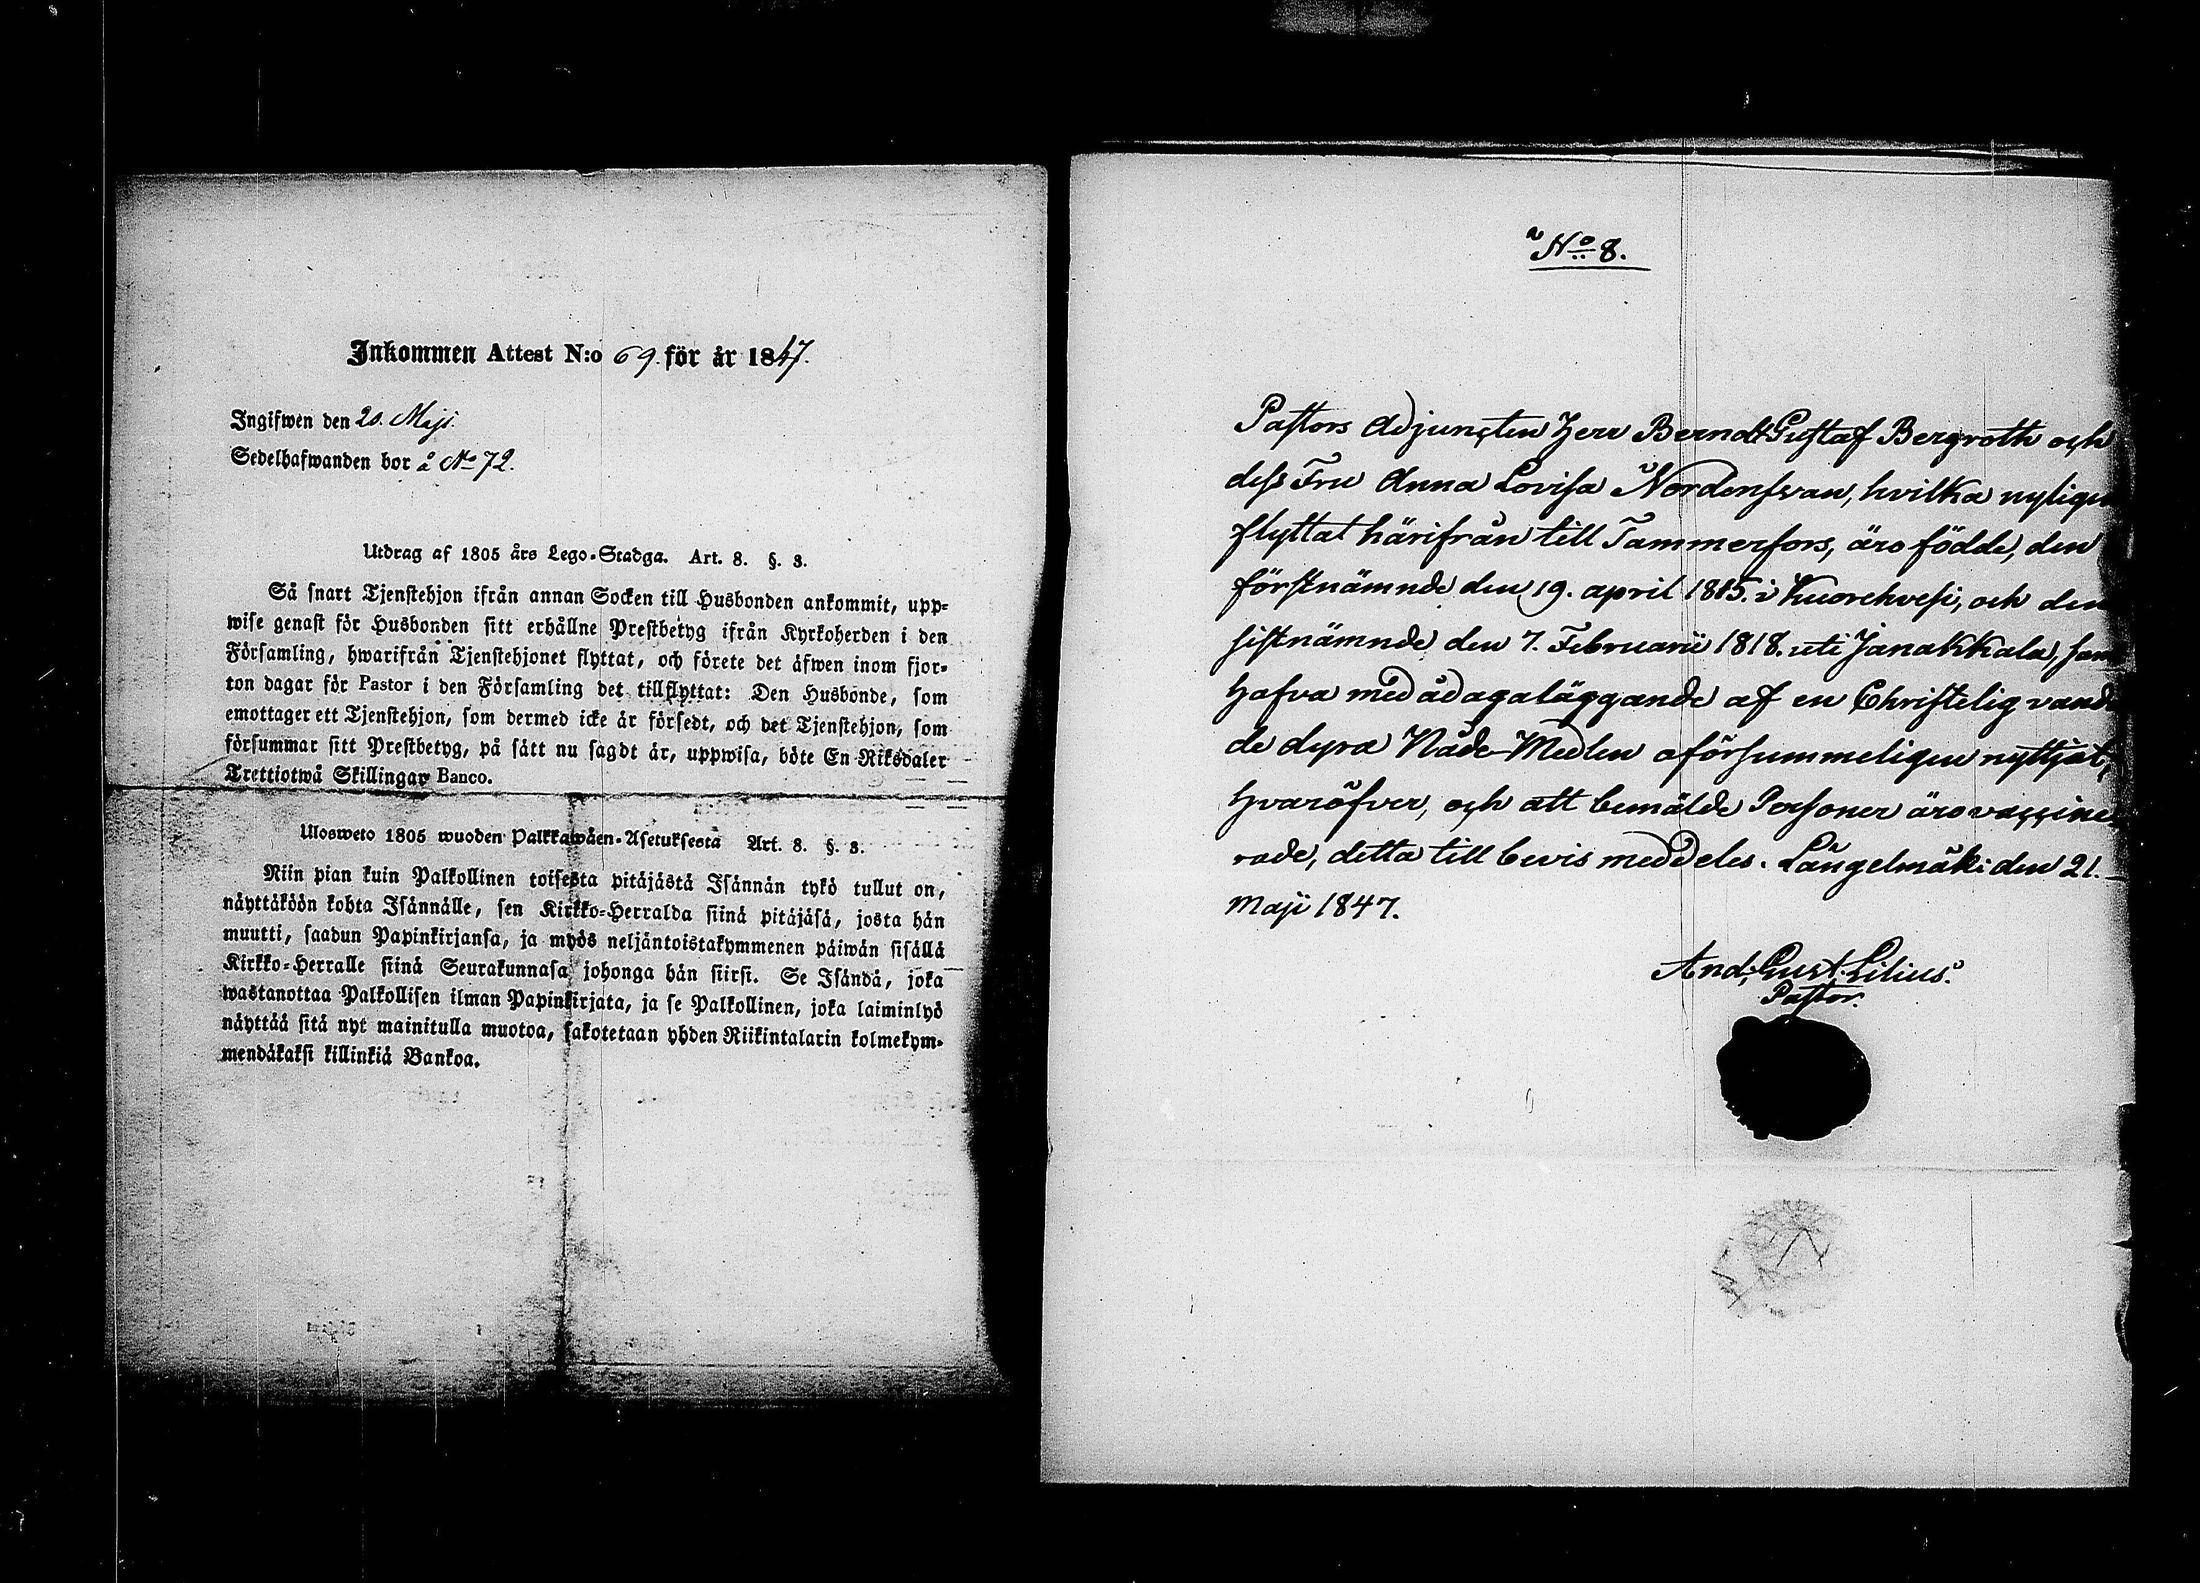 Inkommen Attest N:o 69. för år 1847.
Ingifwen den 20. Maji.
Sedelhafwanden bor å No 72.
Utdrag af 1805 års Lego-Stadga. Art. 8. §. 3.
Så snart Tjenstehjon ifrån annan Socken till Husbonden ankommit, upp-
wise genast för Husbonden sitt erhållne Prestbetyg ifrån Kyrkoherden i den
Församling, hwarifrån Tjenstehjonet flyttat, och förete det äfwen inom fjor-
ton dagar för Pastor i den Församling det tillflyttat: Den Husbonde, som
emottager ett Tjenstehjon, som dermed icke är försedt, och det Tjenstehjon, som
försummar sitt Prestbetyg, på sätt nu sagdt är, uppwisa, böte En Riksdaler
Trettiotwå Skillingar Banco.
Ulosweto 1805 wuoden Palkkawäen-Asetuksesta Art. 8. §. 3.
Niin pian kuin Palkollinen toisesta pitäjästä Isännän tykö tullut on,
näyttäköön kohta Isännälle, sen Kirkko-Herralda siinä pitäjäsä, josta hän
muutti, saadun Papinkirjansa, ja myös neljäntoistakymmenen päiwän sisällä
Kirkko-Herralle siinä Seurakunnasa johonga hän siirsi. Se Isändä, joka
wastanottaa Palkollisen ilman Papinkirjata, ja se Palkollinen, joka laiminlyö
näyttää sitä nyt mainitulla muotoa, sakotetaan yhden Riikintalarin kolmekym-
mendäkaksi killinkiä Bankoa.
No 8.
Pastors Adjuncten Herr Berndt Gustaf Bergroth och
dess Fru Anna Lovisa Nordenswan, hvilka nyligen
flyttat härifrån till Tammerfors, äro födde, den
förstnämnde den 19. april 1815. i Kuorehvesi, och den
sistnämnde den 7. Februarii 1818. uti Janakkala, som
hafva med ådagaläggande af en Christelig vand
de dyra Nåde-Medlen oförsummeligen nyttjat,
hvaröfver, och att bemälde Personer äro vaccine-
rade, detta till bevis meddeles. Längelmäki den 21.
Maji 1847.
And. Gust. Lilius.
Pastor.